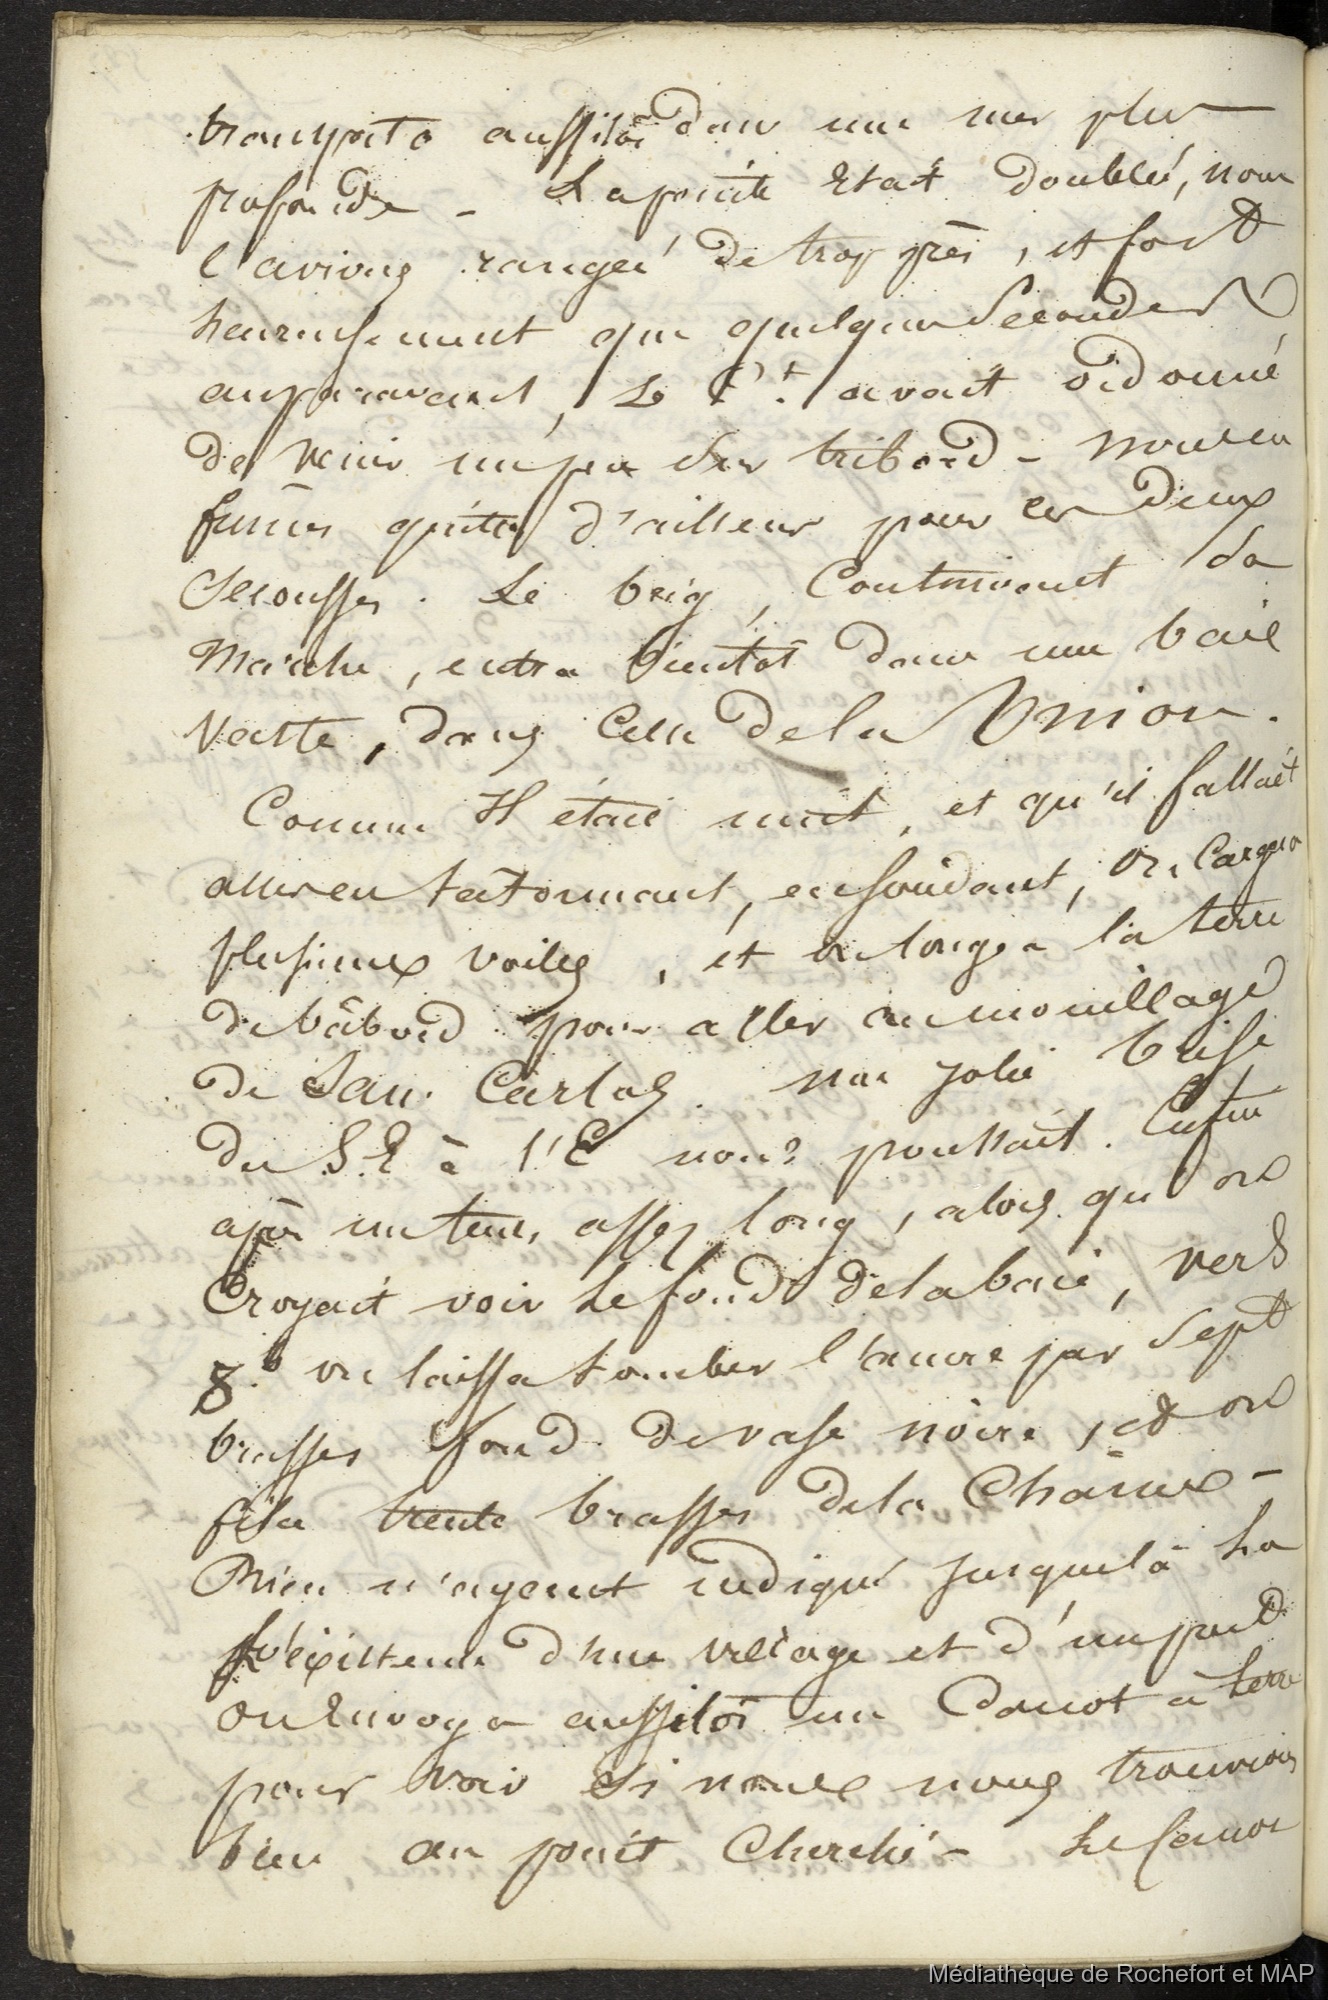 transporta aussitôt dans une mer plus
profonde - La pointe était doublée, nous
l'avions rangée de trop près, et fort
heureusement que quelques secondes
auparavant, le Ct. avait ordonné
de venir un peu sur tribord - nous en
fûmes quittes d'ailleurs pour ces deux
secousses. Le brig, continuant sa
marche, entra bientôt dans une baie
vaste, dans celle de la Union.
Comme Il était nuit, et qu'il fallait
aller en tâtonnant, en sondant, on cargua
plusieurs voiles, et on longea la terre
de bâbord pour aller au mouillage
de San Carlos. une jolie brise
du S.E à l'E nous poussait. Enfin
après un tems assez long, alors qu'on
croyait voir le fond de la baie, vers
8.h on laissa tomber l'ancre par sept
brasses fond de vase noire, et on
fila trente brasses de la chaîne -
Rien n'ayant indiqué jusques là
l'existence d'un village et d'un port
on Envoya aussitôt un canot à terre
pour voir si nous nous trouvions
bien au point cherché - Le canot
Médiathèque de Rochefort et MAP